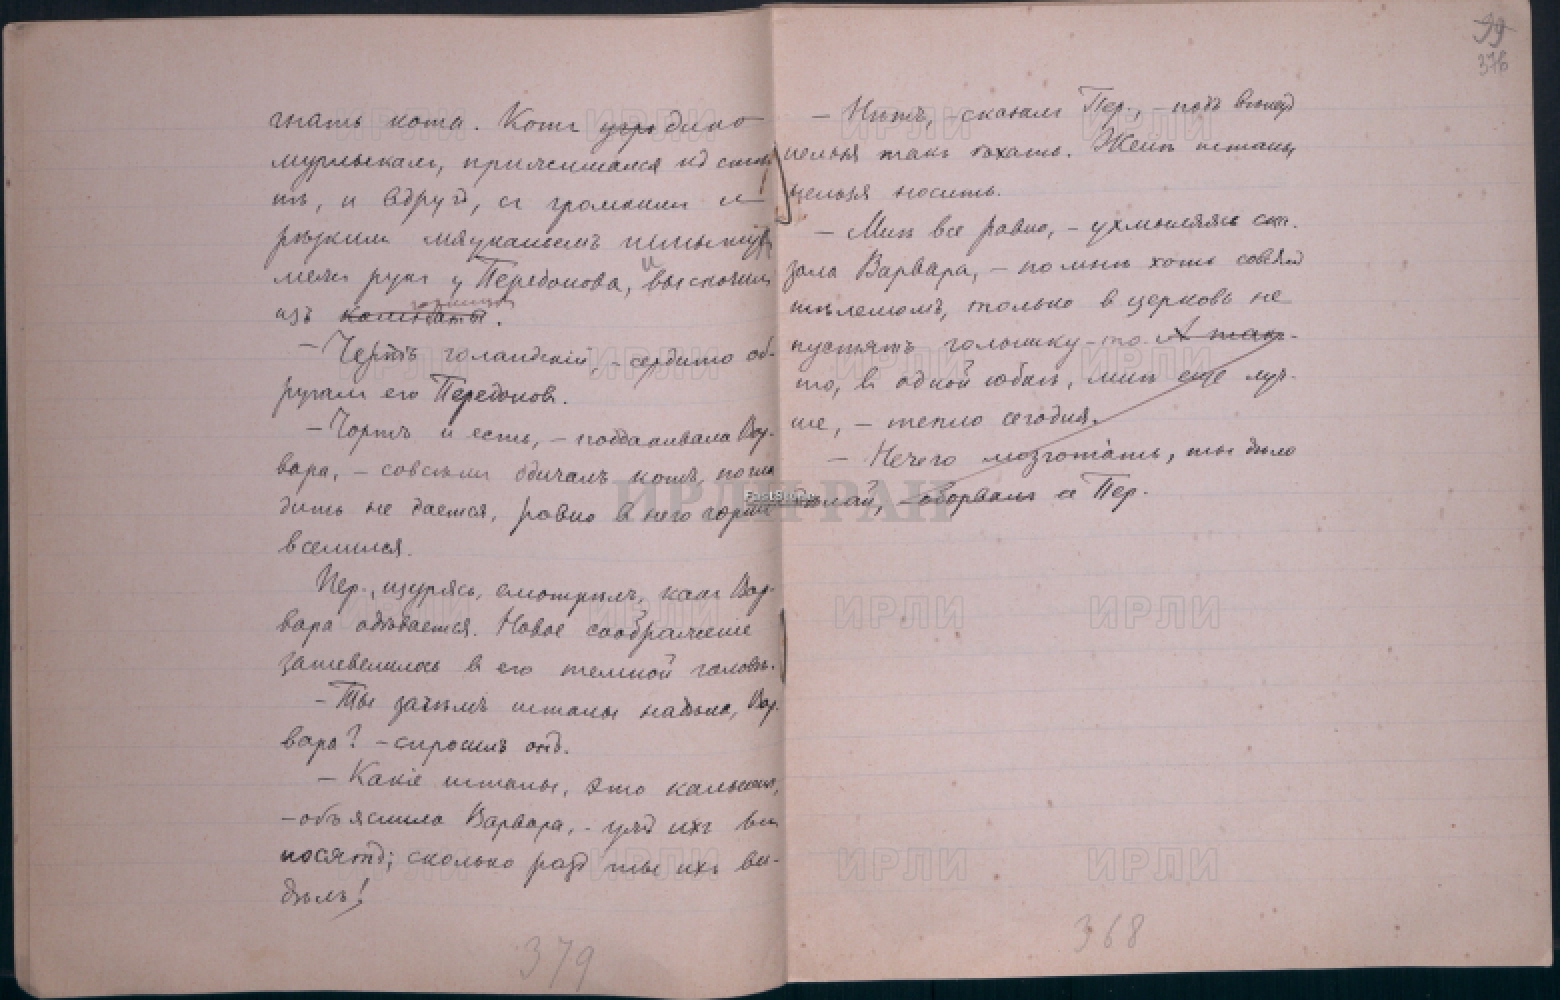 гнать кота. Котъ угро дико
мурлыкалъ, прижимался къ стѣ
нѣ, и вдругъ, съ громкимъ и
рѣзкимъ мяуканьемъ шмыгнулъ
межъ рукъ у Передонова, и выскочилъ
изъ комнаты горницы.
– Чертъ голандскій, – сердито об-
ругалъ его Передоновъ.
– Чортъ и есть, – поддакивала Вар-
вара, – совсѣмъ одичалъ котъ, погла
дить не дается, ровно в него чортъ
вселился.
Пер., щурясь, смотрѣлъ, какъ Вар-
вара одѣвается. Новое соображеніе
зашевелилось в его темной головѣ.
– Ты зачѣмъ штаны надѣла, Вар-
вара? – спросилъ онъ.
– Какіе штаны, это кальсоны,
– объяснила Варвара, – ужъ ихъ всѣ
носятъ; сколько разъ ты ихъ ви-
дѣлъ!
379
99
376
– Нѣтъ, – сказалъ Пер., – подъ вѣнецъ
нельзя такъ ѣхать. Женѣ штаны
нельзя носить.
– Мнѣ все равно, – ухмыляясь ска-
зала Варвара, – по мнѣ хоть совсѣмъ
тѣлешомъ, только в церковь не
пустятъ голышку-то. А такъ-
то, в одной юбкѣ, мнѣ еще луч-
ше, – тепло сегодня.
– Нечего мозготать, ты дѣло
дѣлай, – оборвалъ ее Пер.
368
ИРЛИ РАН
ИРЛИ
FastStone